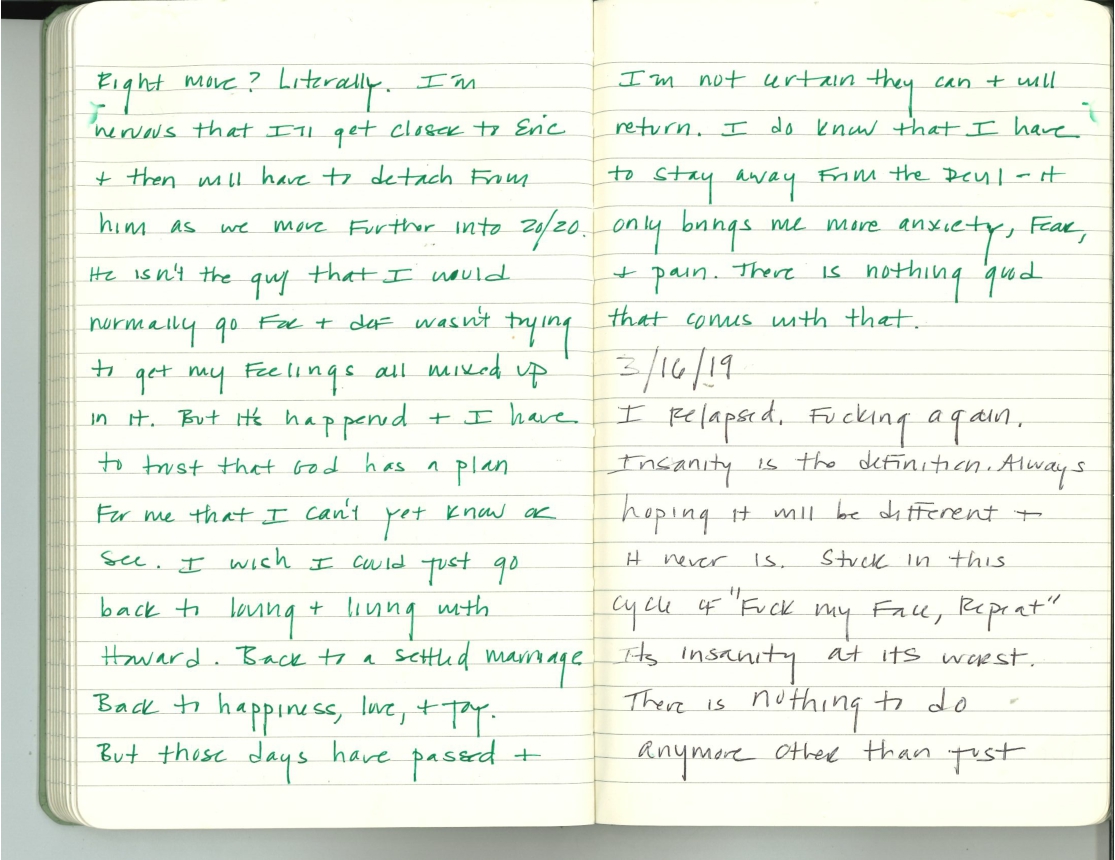 Right move? Literally. I'm
nervous that I'll get closer to Eric
+ then will have to detach From
him as we move Further into 20/20.
He isn't the guy that I would
normally go For + def wasn't trying
to get my Feelings all mixed up
in it. But it's happened + I have
to trust that God has a plan
For me that I can't yet know or
see. I wish I could just go
back to loving + living with
Howard. Back to a settled marriage
Back to happiness, love, + joy.
But those days have passed +
I'm not certain they can + will
return. I do know that I have
to stay away From the Devil - it
only brings me more anxiety, Fear,
+ pain. There is nothing good
that comes with that.
3/16/19
I Relapsed. Fucking again.
Insanity is the definition. Always
hoping it will be different +
it never is. Stuck in this
cycle of "Fuck my Face, Repeat"
Its insanity at its worst.
There is nothing to do
anymore other than just